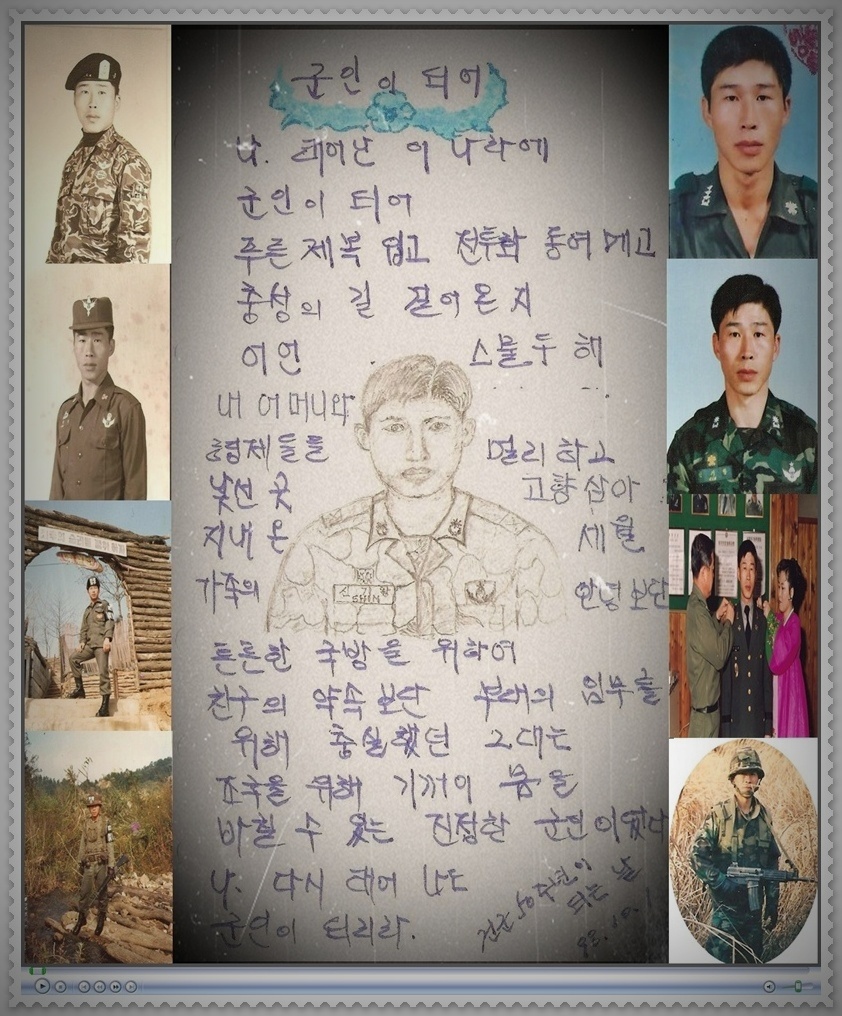 군인이 되어
나. 태어난 이 나라에
군인이 되어
푸른 제복 입고 전투화 동여메고
충성의 길 걸어온 지
어언 스물두 해
내 어머니와
형제들을 멀리하고
낯선 곳 고향 삼아
지내온 세월
가족의 안녕보단
튼튼한 국방을 위하여
친구의 약속보단 부대의 임무를
위해 충실했던 그대는
조국을 위해 기꺼이 몸을
바칠 수 있는 진정한 군인이었다
나. 다시 태어나도
군인이 되리라.
건군 50주년이
되는 날
SHIN